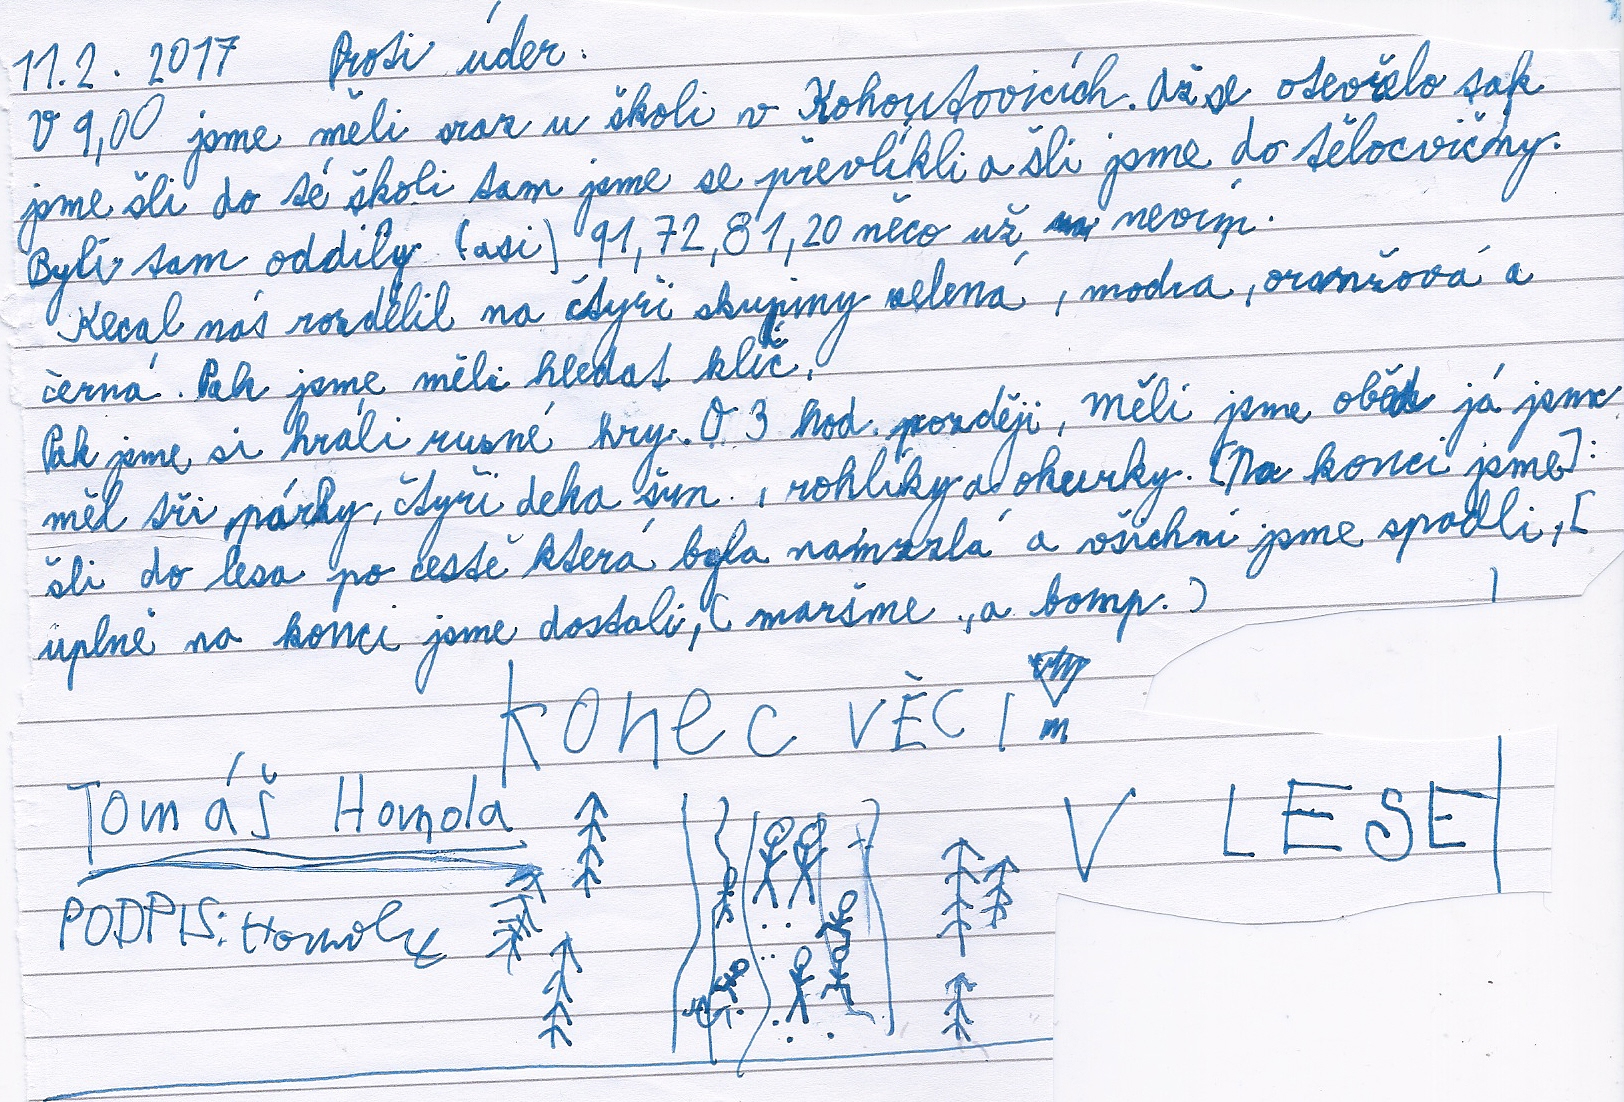 11.2. 2017 Proti úder.
V 9,00 jsme měli sraz u školi v Kohoutovicích. Až se otevřelo tak
jsme šli do té školi tam jsme se převlíkli a šli jsme do tělocvičny.
Byli tam oddíly (asi) 91,72,81,20 něco už nevím.
Kecal nás rozdělil na čtyři skupiny zelená, modra, oranžová a
černá. Pak jsme měli hledat klíč.
Pak jsme si hráli ruzné hry. O 3 hod. později, měli jsme oběd já jsme
měl tři párky, čtyři deka šun., rohlíky a okurky. [Na konci jsme]:
šli do lesa po cestě která byla namrzlá a všichni jsme spadli, [
úplně na konci jsme dostali, ( maršme , a bomp. )
KONEC VĚCI
Tomáš Homola
V LESE
PODPIS: Homola